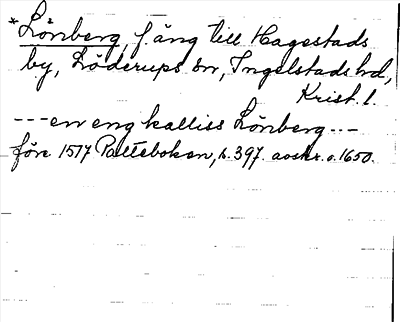 *Lönberg, f. äng till Hagestads
by, Löderups sn, Ingelstads hd,
Krist. l.
---en eng kalliss Lönberg---
före 1517 Palteboken, s. 397. avskr. o. 1650.